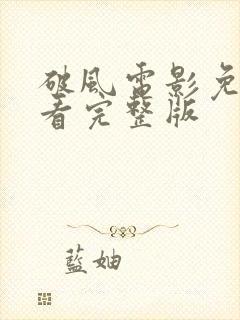 破風電影免
看完整版
藍妯